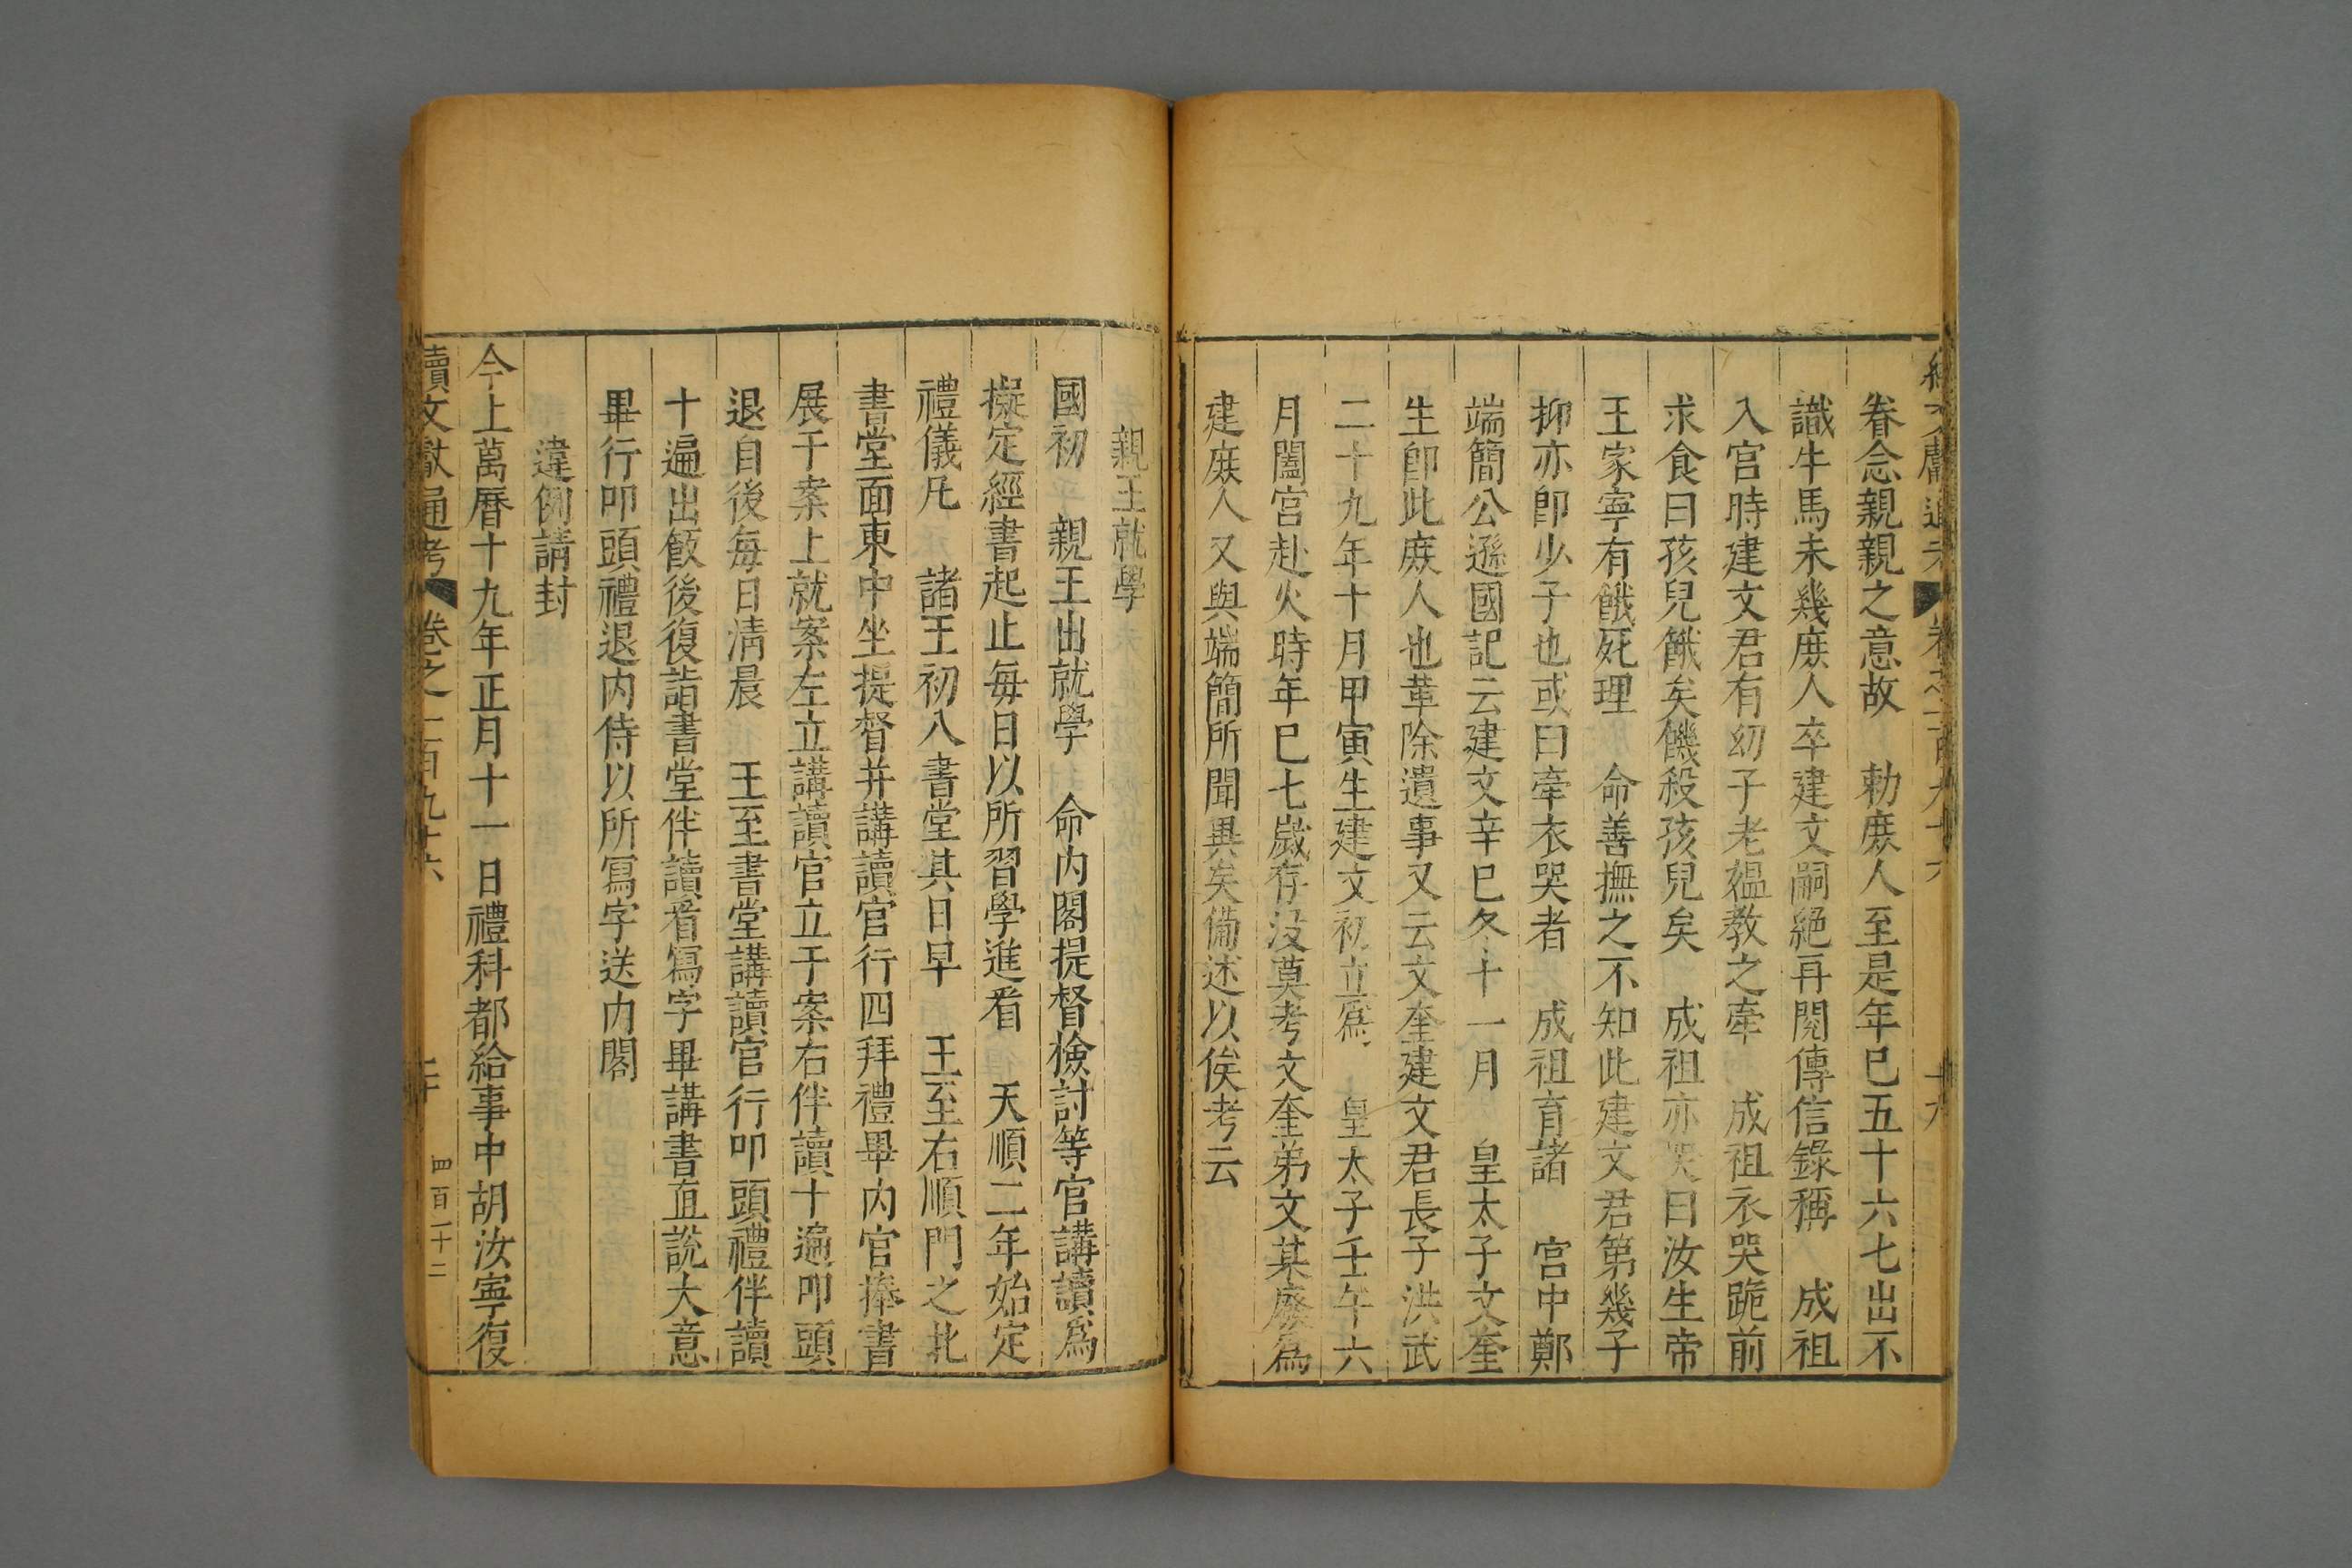 眷念親親之意故　勅庻人至是年巳五十六七出不
識牛馬未幾庻人卒建文嗣絕再閱傳信錄稱　成祖
入宮時建文君有㓜子老媪教之牽　成祖衣哭跪前
求食曰孩兒餓矣饑殺孩兒矣　成祖亦哭曰汝生帝
王家寜有餓死理　命善撫之不知此建文君第幾子
抑亦卽少子也或曰牽衣哭者　成祖育諸　宮中鄭
端簡公遜國記云建文辛巳冬十一月　皇太子文奎
生卽此庻人也革除遺事又云文奎建文君長子洪武
二十九年十月甲寅生建文初立爲　皇太子壬午六
月闔宮赴火時年巳七歲存没莫考文奎弟文某廢爲
建庻人又與端簡所聞異矣備述以俟考云
親王就學
國初　親王出就學　命内閣提督檢討等官講讀爲
擬定經書起止毎日以所習學進看　天順二年始定
禮儀凡　諸王初入書堂其日早　王至右順門之北
書堂面東中坐提督并講讀官行四拜禮畢内官捧書
展于案上就案左立講讀官立于案右伴讀十遍叩頭
退自後毎日清晨　王至書堂講讀官行叩頭禮伴讀
十遍出飯後復詣書堂伴讀看寫字畢講書直說大意
畢行叩頭禮退内侍以所寫字送内閣
違例請封
今上萬曆十九年正月十一日禮科都給事中胡汝寧復
續文獻通考　卷之二百九十六　二十　四百十二